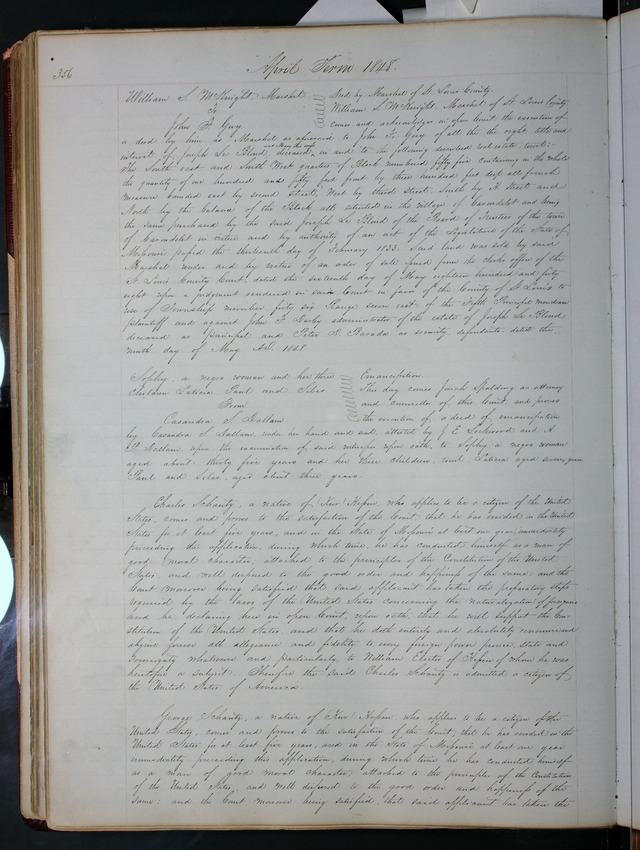 356
April Term 1848
William S. McKnight, Marshal
To
John F. Guy
Ack by Marshal of St. Louis County.
William S. McKnight, Marshal of St. Louis County
comes and acknowledges in open Court the execution of
a deed by him as Marshal as aforesaid to John F. Guy of all the right title and
interest of Joseph Le Blond, deceased, in and to the following described real estate, towit:
The South east and South West quarters of Block numbered fifty five containing in the whole
the quantity of one hundred and fifty feet front by three hundred feet deep all french
measure bounded east by second Street, West by third Street, South by A Street and
North by the balance of the Block all situated in the village of Carondelet and being
the same purchased by the said Joseph Le Blond of the Board of Trustees of the town
of Carondelet in and by authority of an act of the Legislature of the State of
Missouri passed the thirteenth day of February 1833. Said land was sold by said
Marshal under and by virtue of an order of sale issued from the clerks office of the
St. Louis County Court, dated the sixteenth day of May eighteen hundred and forty
eight upon a judgment rendered in said Court in favor of the County of St. Louis to
use of Township number forty six Range seven east of the Fifth Principal meridian
plaintiff and against John F. Darby administrator of the estate of Joseph Le Blond
deceased as principal and Peter D. as security defendants dated the
ninth day of May A.D. 1848
Sophy, a negro woman and her three
Children Leticia Paul and Silas
From
Casandra S. Hallam
Emancipation.
This day comes Josiah Spalding an attorney
and counsellor of this Court, and proves
the execution of a deed of emancipation
by Casandra S. Hallam, under her hand and seal, attested by J. E. Lockwood and A.
P. Hallam, upon the examination of said upon oath, to Sophy a negro woman
aged about thirty five years and her three children, towit Leticia aged seven years
Paul and Silas, aged about three years.
Charles Schanty, a native of Kur Hessen, who applies to be a citizen of the United
States, comes and proves to the satisfaction of the Court, that he has resided in the United
States for at least five years, and in the State of Missouri at least one year, immediately
preceeding this application, during which time, he has conducted himself as a man of
good moral character, attached to the principles of the Constitution of the United
States, and well disposed to the good order and happiness of the same; and the
Court moreover being satisfied that said applicant has taken the preparatory steps
required by the laws of the United States concerning the naturalization of foreigners
and he declaring here in open Court, upon oath, that he will support the Con-
stitution of the United States, and that he doth entirely and absolutely renounce and
abjure forever all allegiance and fidelity to every foreign power prince, state and
Sovereignty whatsoever and particularly to William Elector of Hessen of whom he was
heretofore a subject. Therefore the said Charles Schanty is admitted a citizen of
the United States of America.
George Schanty, a native of Kur Hessen who applies to be a citizen of the
United States, comes and proves to the satisfaction of the Court, that he has resided in the
United States for at least five years, and in the State of Missouri at least one year
immediately preceeding this application, during which time he has conducted himself
as a man of good moral character, attached to the principles of the Constitution
of the United States, and well disposed to the good order and happiness of the
same; and the Court moreover being satisfied that said applicant has taken the